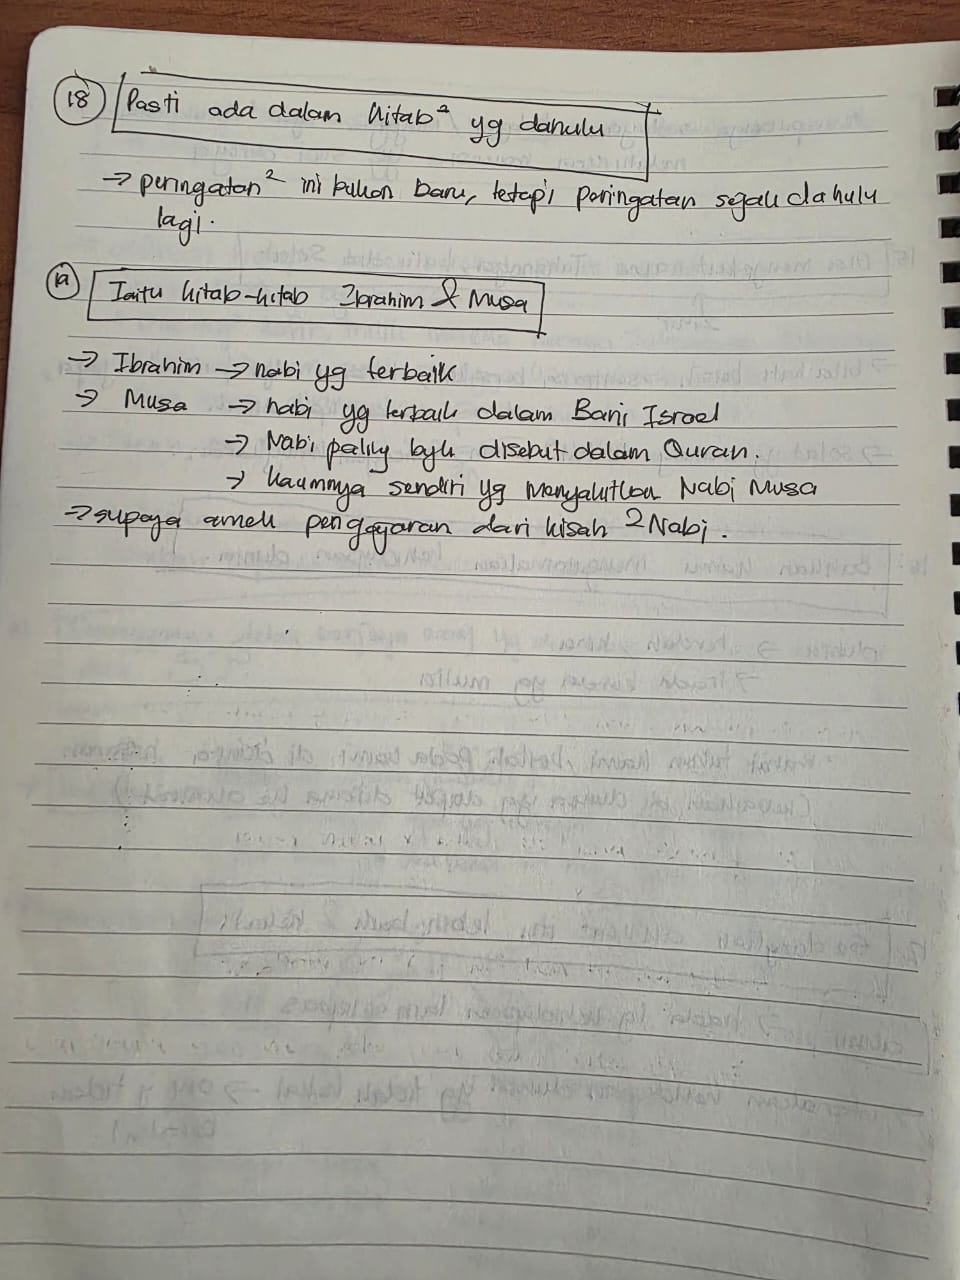 18 Pasti ada dalam kitab² yg dahulu
→ peringatan² ini bukan baru, tetapi peringatan sejak dahulu
lagi.
19 Iaitu kitab-kitab Ibrahim & Musa
→ Ibrahim → nabi yg terbaik
→ Musa → nabi yg terbaik dalam Bani Israel
→ Nabi paling byk disebut dalam Quran.
→ kaumnya sendiri yg menyakitkan Nabi Musa
→ supaya amek pengajaran dari kisah 2 Nabi.